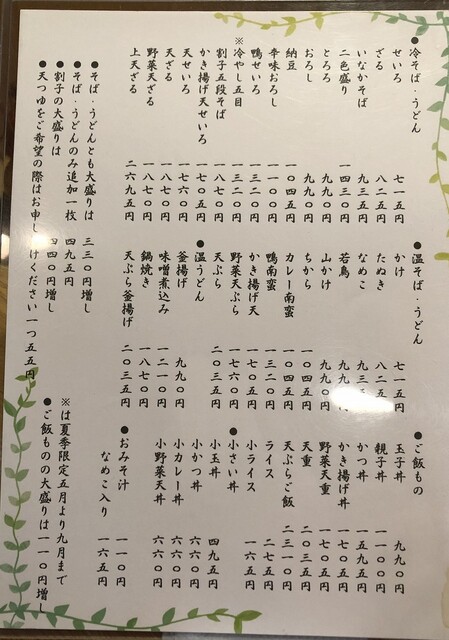 ●冷そば・うどん
せいろ 七一五円
ざる 八二五円
いなかそば 九三五円
二色盛り 一四三〇円
とろろ 九九〇円
おろし 九九〇円
納豆 一〇四五円
辛味おろし 一一〇〇円
鴨せいろ 一三二〇円
※冷やし五目 一三二〇円
割子五段そば 一八七〇円
かき揚げ天せいろ 一七〇五円
天せいろ 一七六〇円
天ざる 一八七〇円
野菜天ざる 一八七〇円
上天ざる 二六九五円
●そば・うどんとも大盛りは 三三〇円増し
●そば・うどんのみ追加一枚 四九五円
●割子の大盛りは 四四〇円増し
●天つゆをご希望の際はお申しけください一つ五五円
●温そば・うどん
かけ 七一五円
たぬき 八二五円
なめこ
若鳥
山かけ 九九〇円
ちから 一〇四五円
カレー南蛮 一〇四五円
鴨南蛮 一三二〇円
かき揚げ天 一七〇五円
野菜天ぷら 一七六〇円
天ぷら 二〇三五円
●温うどん
釜揚げ 九九〇円
味噌煮込み 一二一〇円
鍋焼き 一八七〇円
天ぷら釜揚げ 二〇三五円
●ご飯もの
玉子丼 九九〇円
親子丼 一一〇〇円
かつ丼 一五九五円
かき揚げ丼 一七〇五円
野菜天重 一七〇五円
天重 二〇三五円
天ぷらご飯 二三一〇円
ライス 二七五円
小ライス 一六五円
●小さい丼
小玉丼 四九五円
小かつ丼 六六〇円
小カレー丼 六六〇円
小野菜天丼 六六〇円
●おみそ汁 一一〇円
なめこ入り 一六五円
※は夏季限定五月より九月まで
●ご飯ものの大盛りは一一〇円増し